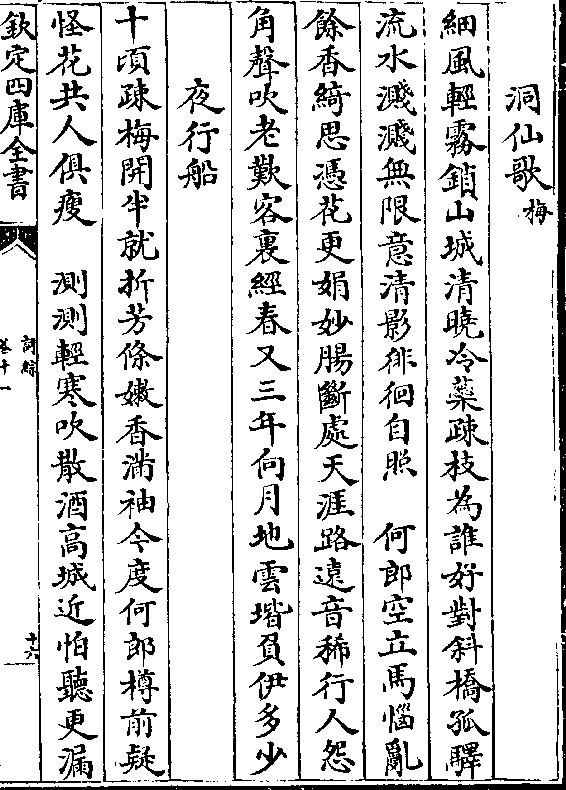 洞仙歌梅
細風輕霧鎖山城清曉冷蘂疎枝為誰好對斜橋孤驛
流水濺濺無限意清影徘徊自照　何郎空立馬惱亂
餘香綺思憑花更娟妙腸斷處天涯路遠音稀行人怨
角聲吹老歎客裏經春又三年向月地雲堦負伊多少
夜行船
十頃疎梅開半就折芳條嫩香滿袖今度何郎樽前疑
怪花共人俱瘦　測測輕寒吹散酒高城近怕聽更漏
欽定四庫全書
詞綜
卷十一
十六